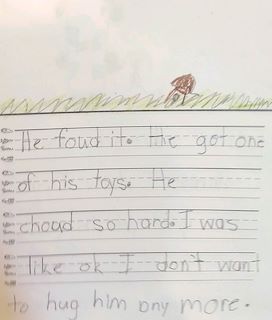 He foud it. He got one
of his toys. He
choud so hard. I was
like ok I don't want
to hug him any more.